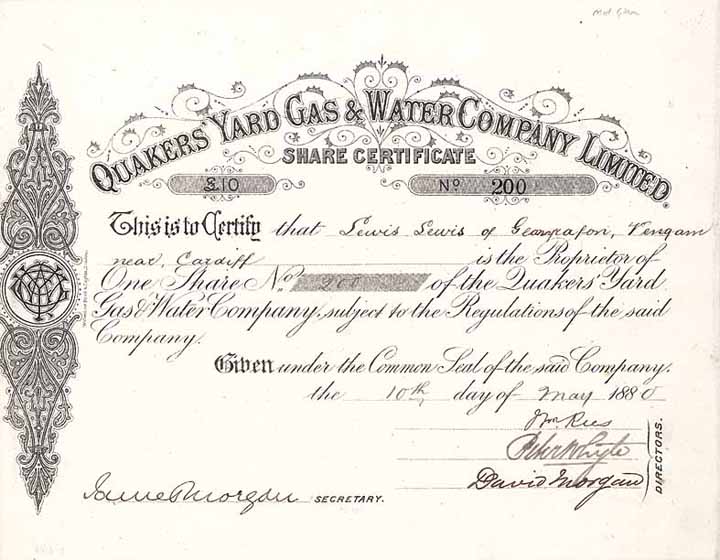 QUAKERS' YARD GAS & WATER COMPANY LIMITED.
SHARE CERTIFICATE
£10 No 200
This is to Certify that Lewis Lewis of Gearafon, Pengam
near, Cardiff is the Proprietor of
One Share No. 200 of the Quakers' Yard
Gas & Water Company, subject to the Regulations of the said
Company.
Given under the Common Seal of the said Company.
the 10th day of May 1880
Wm Rees
Peter Whyte
David Morgan
DIRECTORS.
James Morgan SECRETARY.